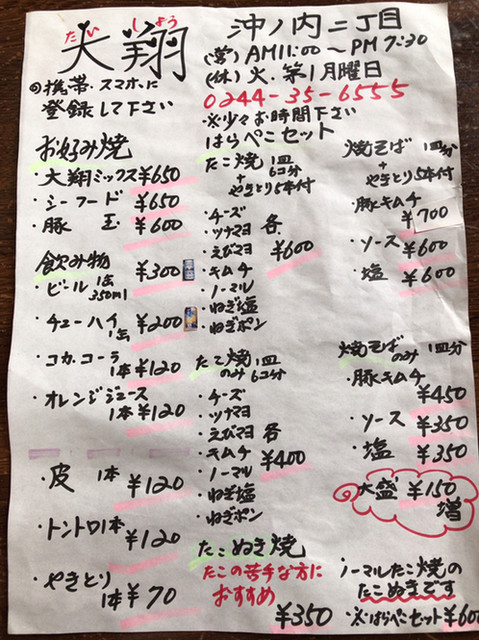 たい しょう
大翔
沖ノ内二丁目
(営)AM11:00〜PM7:30
(休)火.第1月曜日
0244-35-6555
※少々お時間下さい
◎携帯.スマホに
登録して下さい
お好み焼
・大翔ミックス¥650
・シーフード ¥650
・豚 玉 ¥600
飲み物
・ビール 1缶 350ml ¥300
・チューハイ 1缶 ¥200
・コカ.コーラ 1本 ¥120
・オレンジジュース 1本 ¥120
・皮 1本 ¥120
・トントロ 1本 ¥120
・やきとり 1本 ¥70
はらぺこセット
たこ焼 1皿 6コ分
+
やきとり5本付
・チーズ
・ツナマヨ 各
・えびマヨ ¥600
・キムチ
・ノーマル
・ねぎ塩
・ねぎポン
たこ焼のみ 1皿 6コ分
・チーズ
・ツナマヨ
・えびマヨ 各
・キムチ ¥400
・ノーマル
・ねぎ塩
・ねぎポン
たこぬき焼
たこの苦手な方に
おすすめ
¥350
焼そば 1皿分
+
やきとり5本付
・豚キムチ
¥700
・ソース ¥600
・塩 ¥600
焼そばのみ 1皿分
・豚キムチ
¥450
・ソース ¥350
・塩 ¥350
大盛 ¥150
増
ノーマルたこ焼の
たこぬきです
・※はらぺこセット¥600